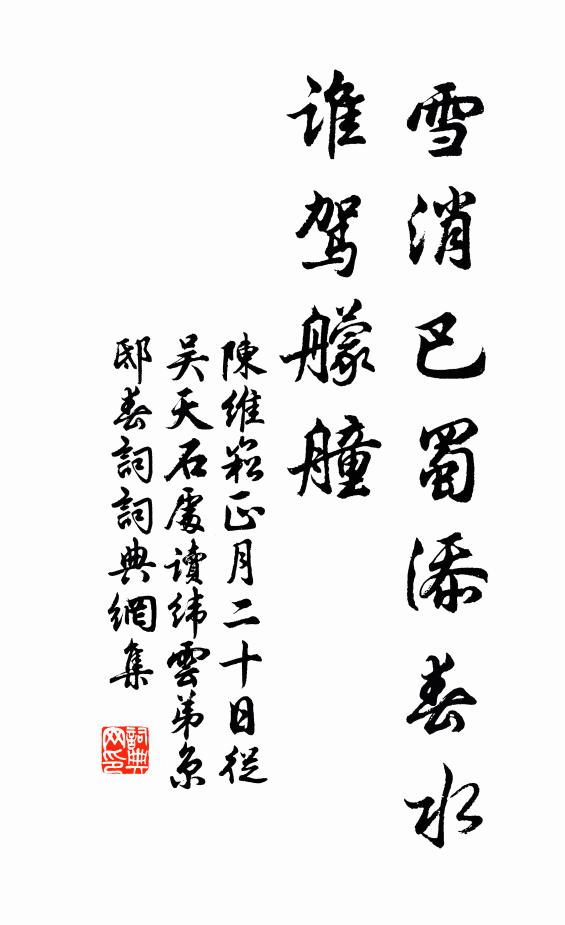 雪消巴蜀添春水
谁駕艨艟
陳維崧正月二十日從
吴天石處讀緯雲弟京
邸春詞詞典網集
詞典
网印